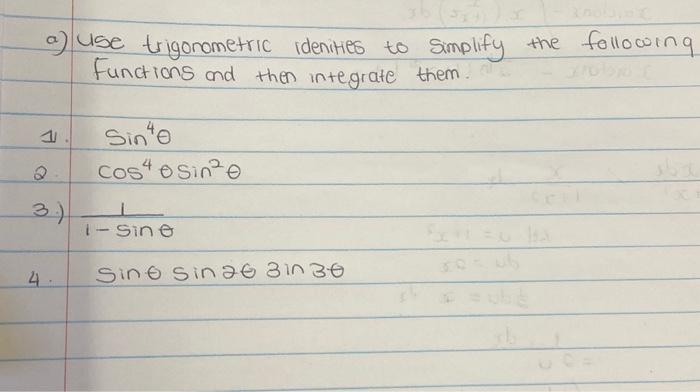 a) Use trigonometric idenities to simplify the following
functions and then integrate them.
1. Sin⁴θ
2. cos⁴θ sin²θ
3.) 1/(1 - sinθ)
4. sinθ sin2θ 3in3θ